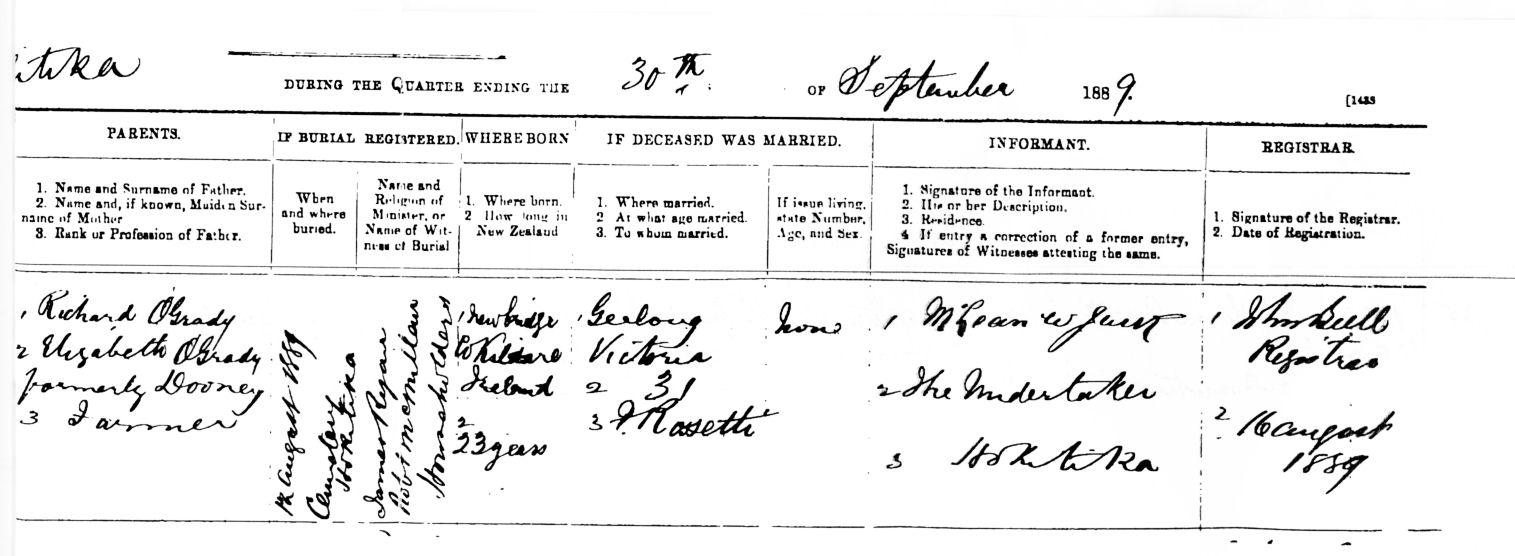 itika
DURING THE QUARTER ENDING THE 30th OF September 1889. [1433
PARENTS.
1. Name and Surname of Father.
2. Name and, if known, Maiden Sur-
name of Mother
3. Rank or Profession of Father.
IF BURIAL REGISTERED.
When
and where
buried.
Name and
Religion of
Minister, or
Name of Wit-
ness of Burial
WHERE BORN
1. Where born.
2 How long in
New Zealand
IF DECEASED WAS MARRIED.
1. Where married.
2 At what age married.
3. To whom married.
If issue living,
state Number,
Age, and Sex.
INFORMANT.
1. Signature of the Informant.
2. His or her Description.
3. Residence.
4 If entry a correction of a former entry,
Signatures of Witnesses attesting the same.
REGISTRAR.
1. Signature of the Registrar.
2. Date of Registration.
1 Richard O'Grady
2 Elizabeth O'Grady
formerly Dooney
3 Farmer
August 1889
Cemetery
Hokitika
James Ryan
Robt McMillan
Householders
1 Newbridge
Co Kildare
Ireland
2
23 years
1 Geelong
Victoria
2 31
3 F Rosetti
None
1 McLean
2 The Undertaker
3 Hokitika
1 John
Registrar
2 16 August
1889